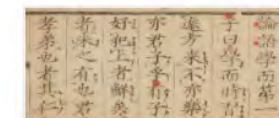 論語學而第一
子曰學而時習
遠方來不亦樂
亦君子乎有子
好犯上者鮮矣
者未之有也君
孝弟也者其仁